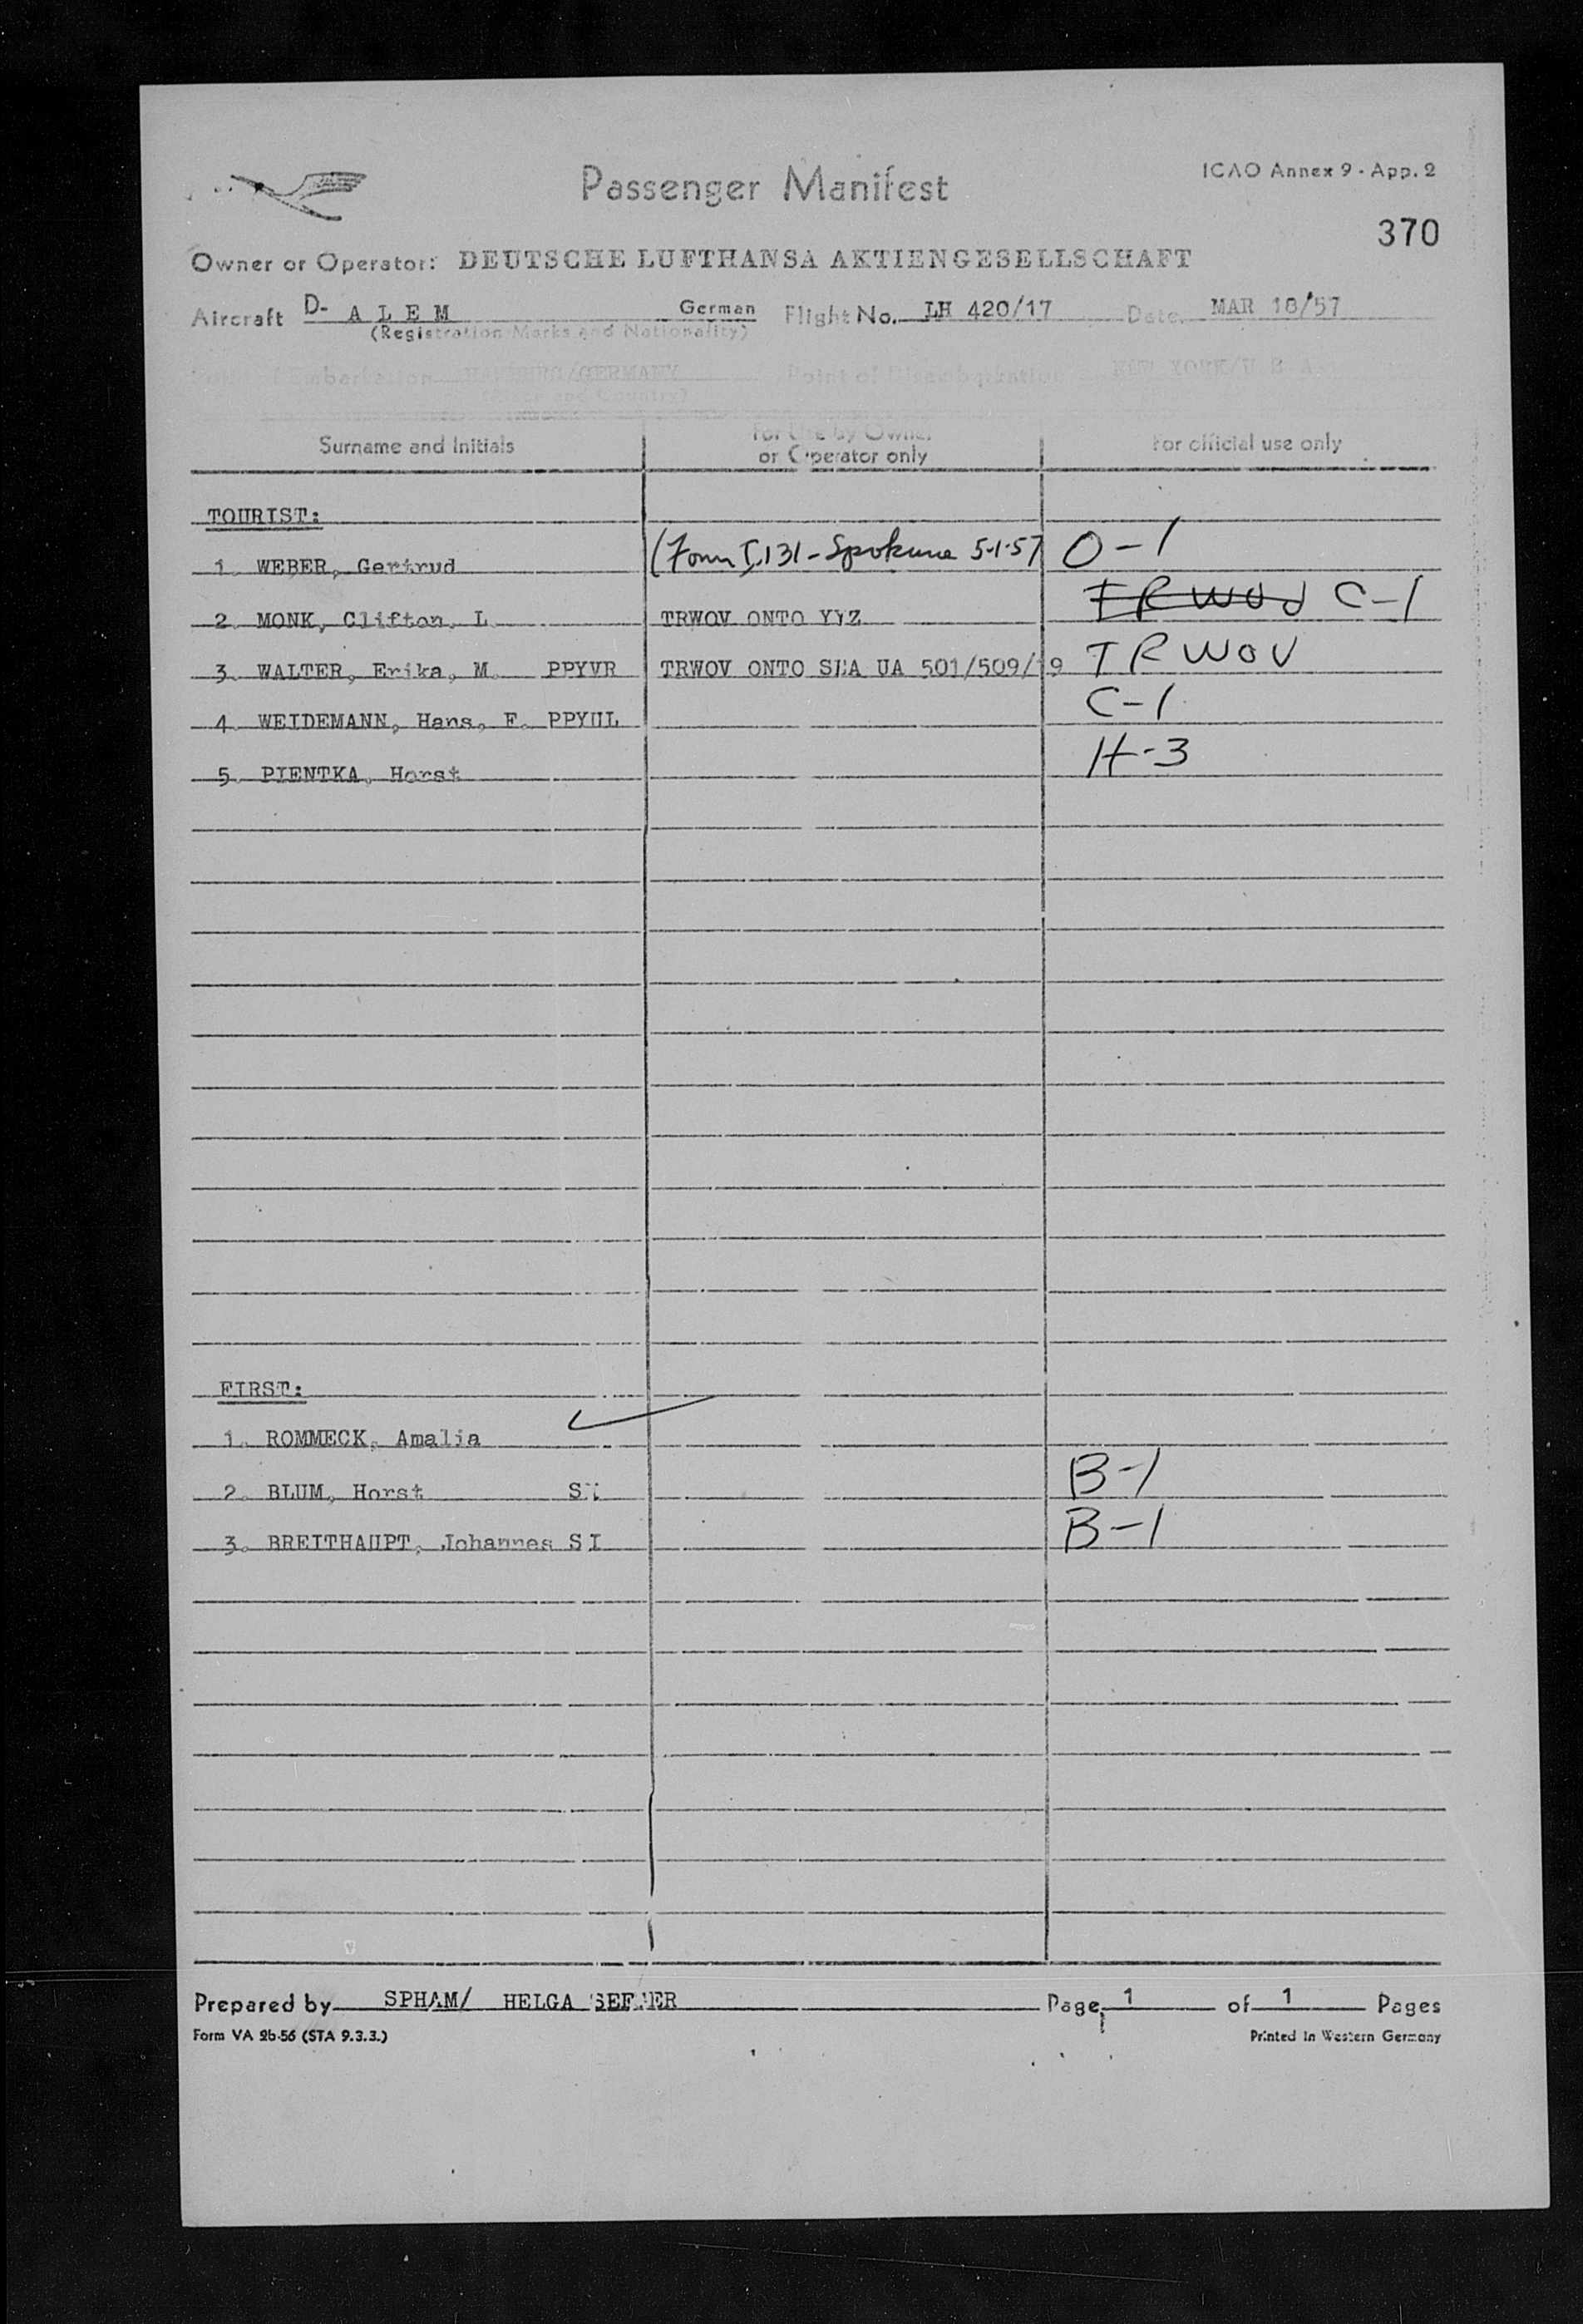 Passenger Manifest
ICAO Annex 9 - App. 2
370
Owner or Operator: DEUTSCHE LUFTHANSA AKTIENGESELLSCHAFT
Aircraft D- A L E M German Flight No. LH 420/17 Date MAR 18/57
(Registration Marks and Nationality)
Point of Embarkation HAMBURG/GERMANY Point of Disembarkation NEW YORK/U S A
(Place and Country)
Surname and Initials
For Use by Owner
or Operator only
For official use only
TOURIST:
1. WEBER, Gertrud (Form I.131 - Spokane 5-1-57 O-1
2. MONK, Clifton, L. TRWOV ONTO YYZ TRWOV C-1
3. WALTER, Erika, M. PPYVR TRWOV ONTO SEA UA 501/509/19 TRWOV
4. WEIDEMANN, Hans, F. PPYUL C-1
5. PIENTKA, Horst H-3
FIRST:
1. ROMMECK, Amalia
2. BLUM, Horst B-1
3. BREITHAUPT, Johannes SI B-1
Prepared by SPHAM/ HELGA Page 1 of 1 Pages
Form VA 2b-56 (STA 9.3.3.)
Printed in Western Germany